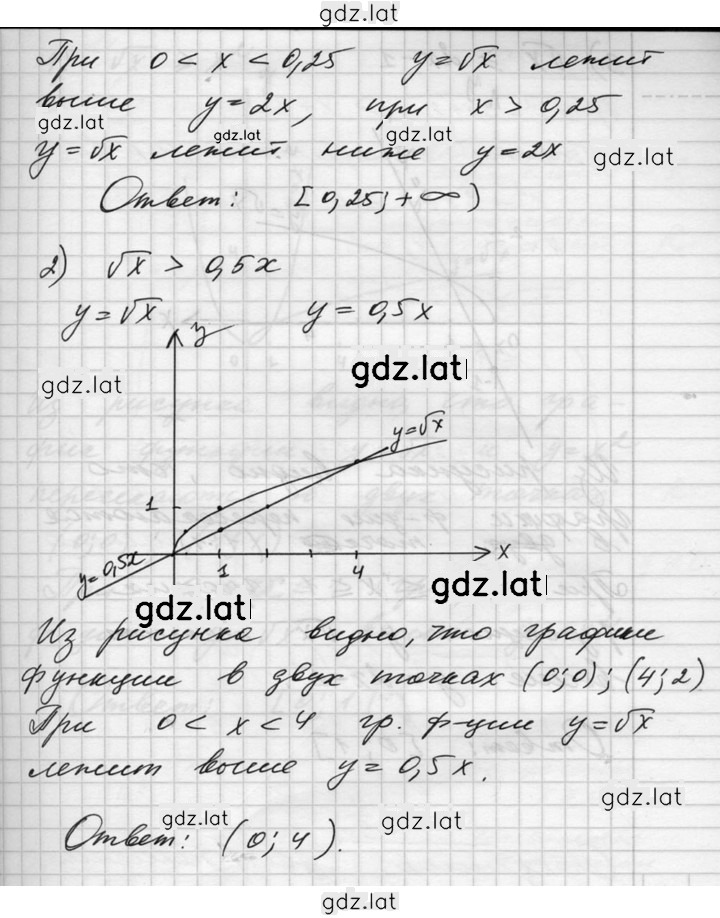 gdz.lat
При 0 < x < 0,25 y = √x лежит
выше y = 2x, при x > 0,25
gdz.lat gdz.lat gdz.lat
y = √x лежит ниже y = 2x
gdz.lat
Ответ: [0,25; +∞)
2) √x > 0,5x
y = √x y = 0,5x
y
gdz.lat
gdz.lat
y=√x
1
x
y=0,5x
1 4
gdz.lat
gdz.lat
Из рисунка видно, что графики
функции в двух точках (0; 0); (4; 2)
При 0 < x < 4 гр. ф-ции y = √x
лежит выше y = 0,5x.
gdz.lat
gdz.lat gdz.lat
Ответ: (0; 4).
gdz.lat